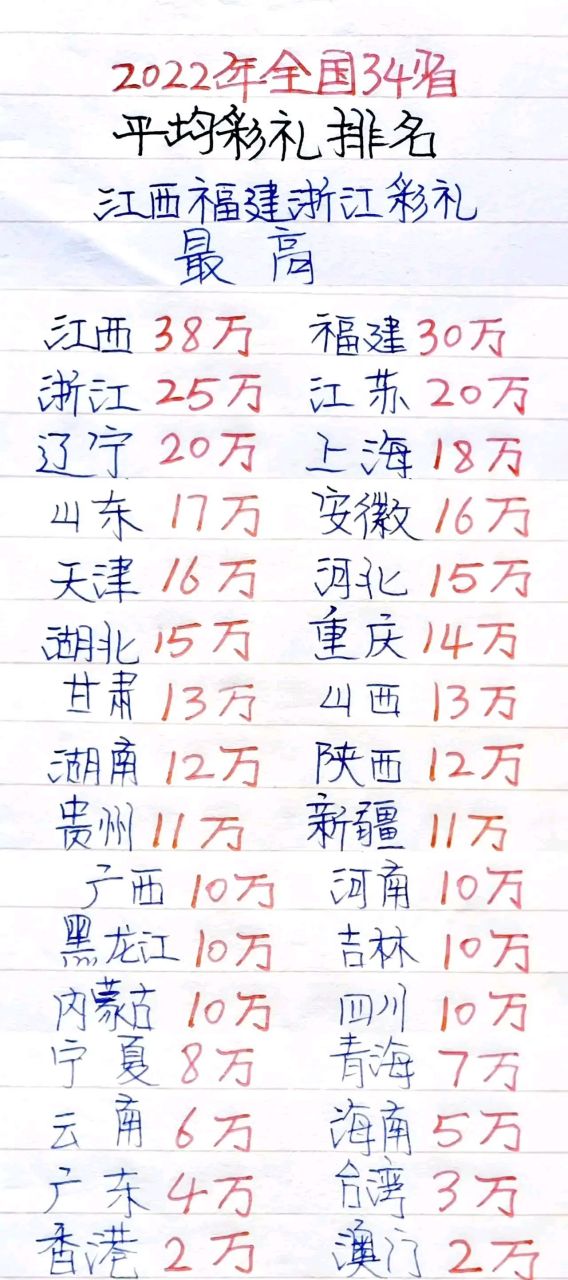 2022年全国34省
平均彩礼排名
江西福建浙江彩礼
最高
江西 38万 福建 30万
浙江 25万 江苏 20万
辽宁 20万 上海 18万
山东 17万 安徽 16万
天津 16万 河北 15万
湖北 15万 重庆 14万
甘肃 13万 山西 13万
湖南 12万 陕西 12万
贵州 11万 新疆 11万
广西 10万 河南 10万
黑龙江 10万 吉林 10万
内蒙古 10万 四川 10万
宁夏 8万 青海 7万
云南 6万 海南 5万
广东 4万 台湾 3万
香港 2万 澳门 2万